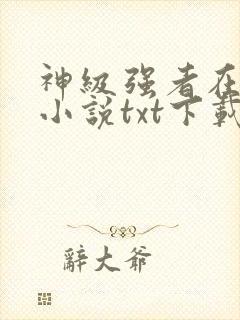 神级强者在
小说txt下载
辭大爺